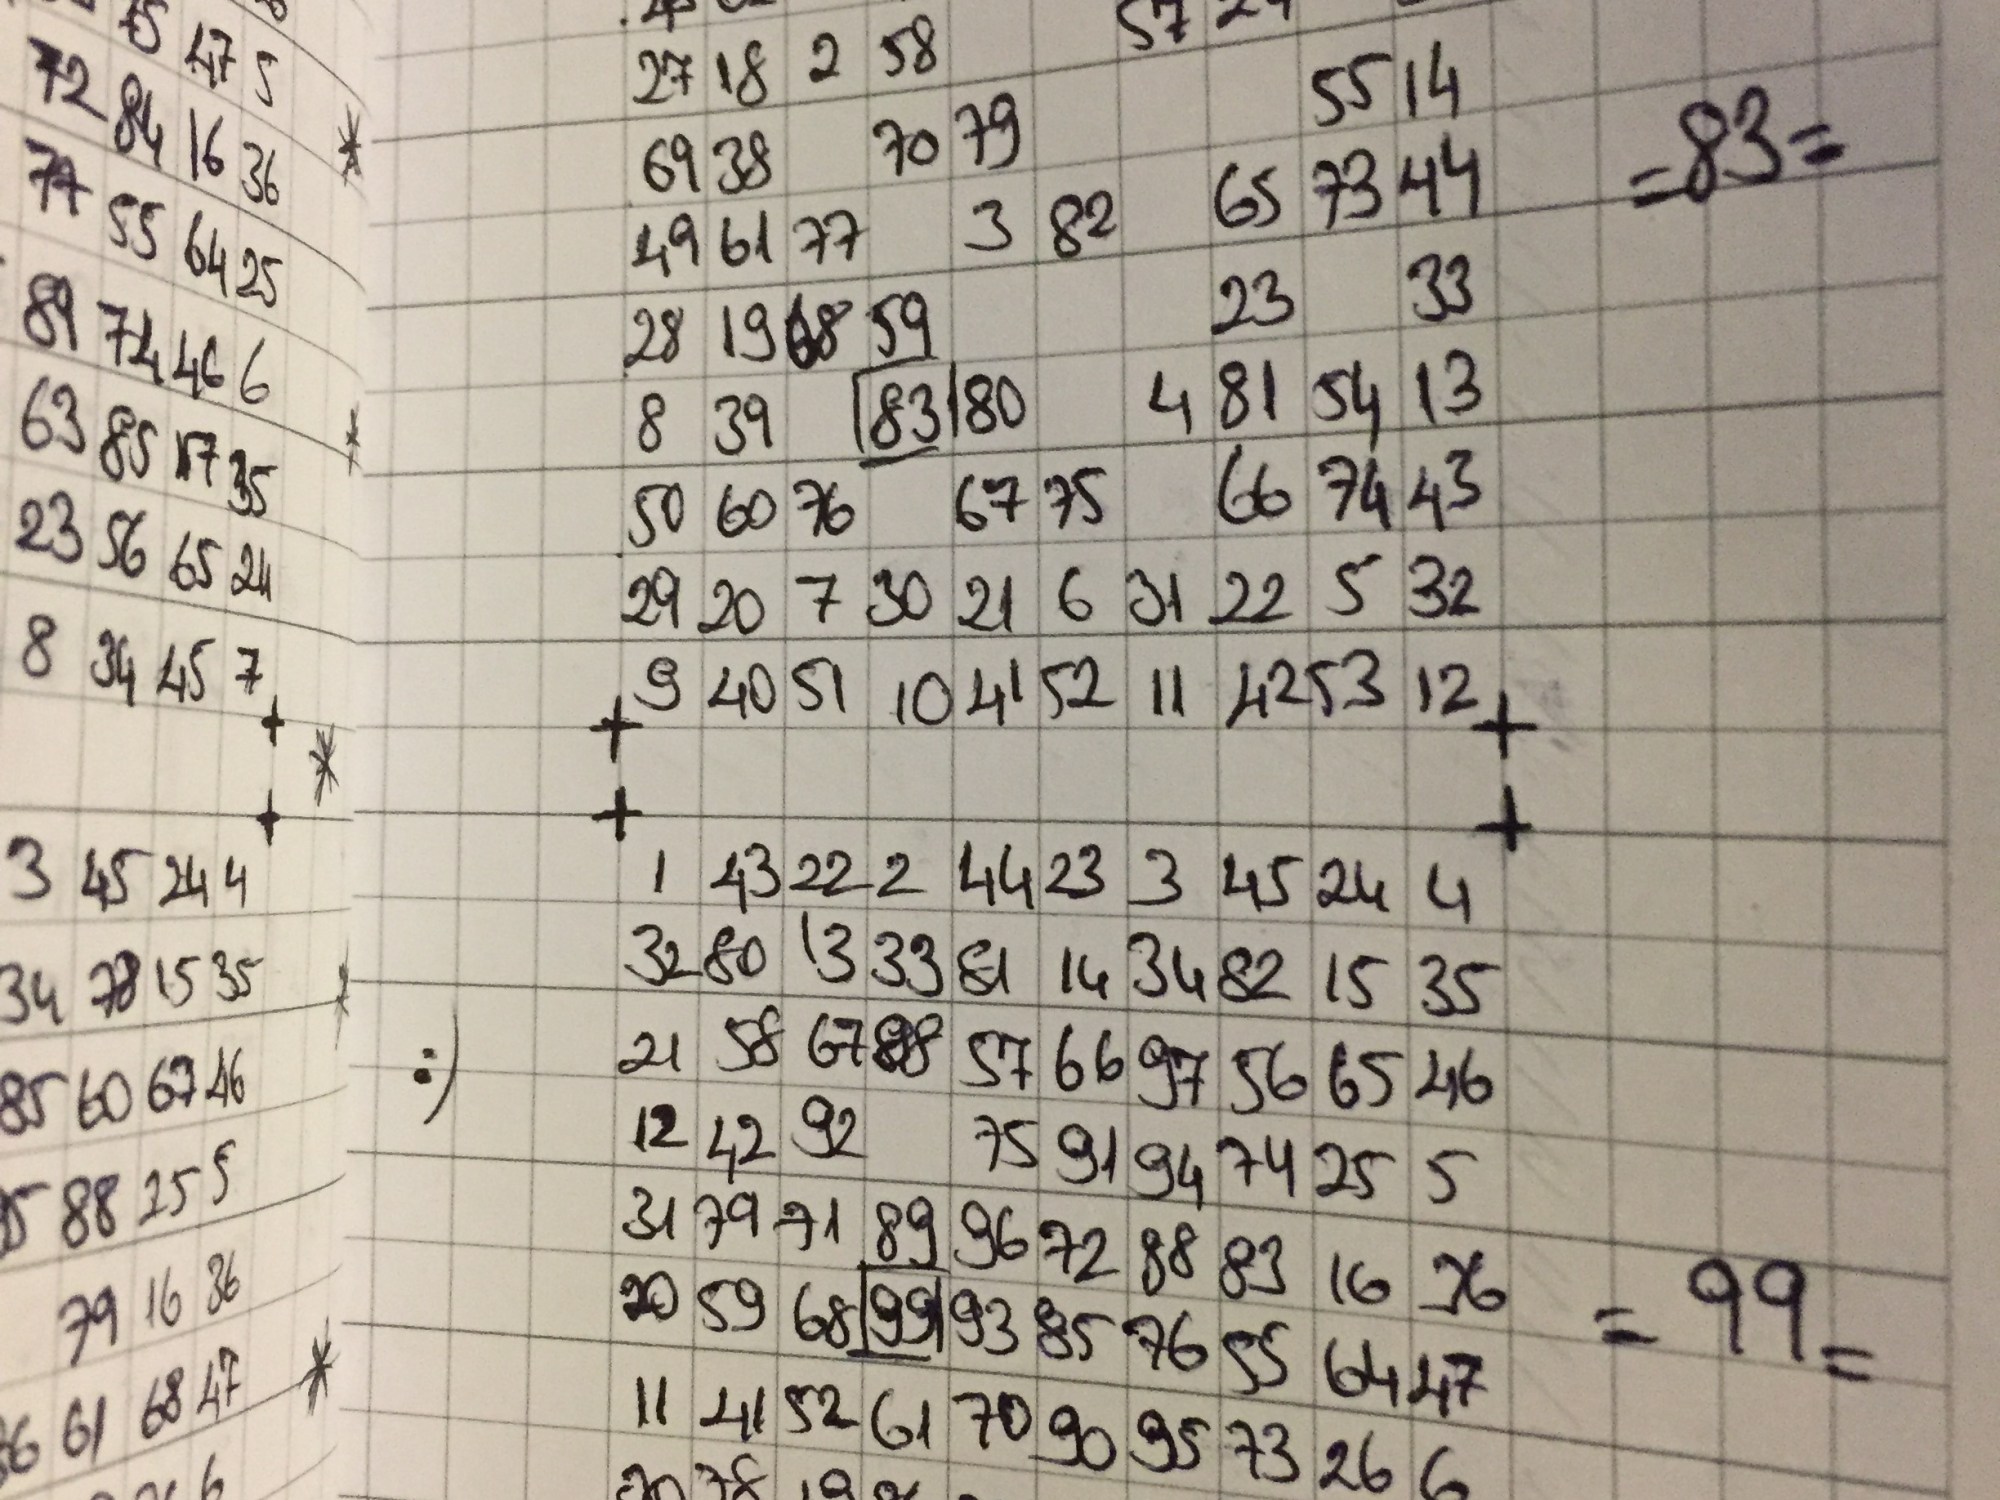 47 5
72 84 16 36
77 55 64 25
89 74 46 6
63 85 17 35
23 56 65 24
8 34 45 7
3 45 24 4
34 78 15 35
85 60 67 46
88 25 5
79 16 36
61 68 47
6
57 24
27 18 2 58 55 14
69 38 70 79 65 73 44
49 61 77 3 82 23 33
28 19 68 59
8 39 83 80 4 81 54 13
50 60 76 67 75 66 74 43
29 20 7 30 21 6 31 22 5 32
9 40 51 10 41 52 11 42 53 12
= 83 =
1 43 22 2 44 23 3 45 24 4
32 80 13 33 81 14 34 82 15 35
:)
21 58 67 98 57 66 97 56 65 46
12 42 92 75 91 94 74 25 5
31 79 71 89 96 72 88 83 16 36
20 59 68 99 93 85 76 55 64 47
11 41 52 61 70 90 95 73 26 6
78 19
= 99 =